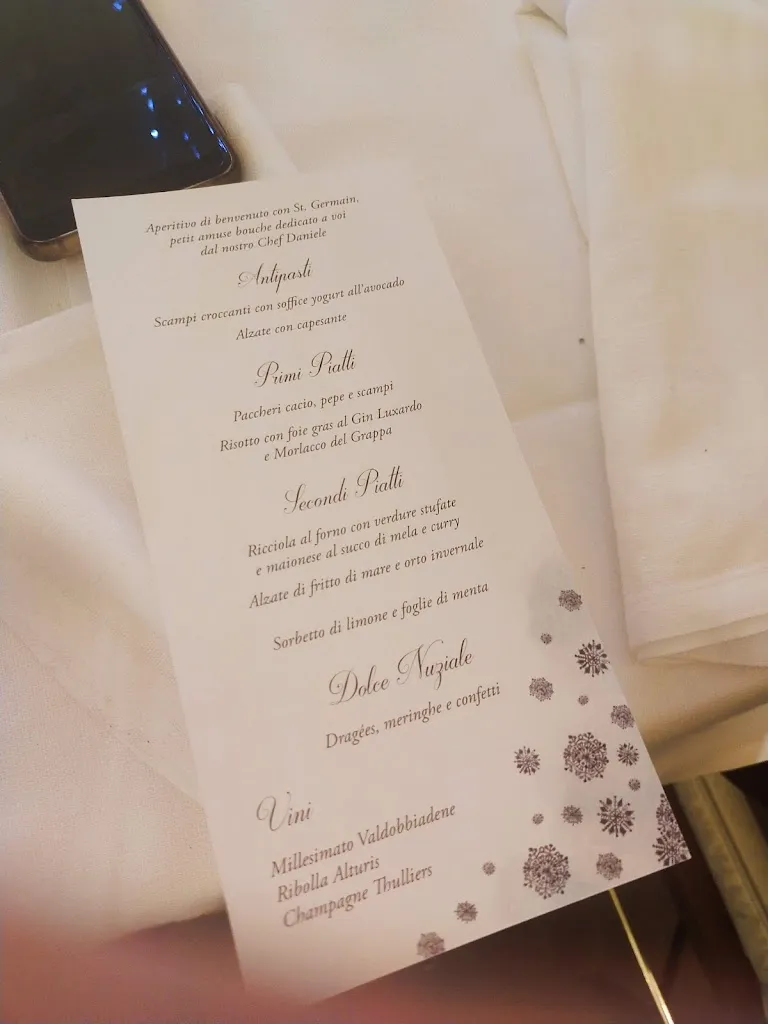 Aperitivo di benvenuto con St. Germain,
petit amuse bouche dedicato a voi
dal nostro Chef Daniele
Antipasti
Scampi croccanti con soffice yogurt all'avocado
Alzate con capesante
Primi Piatti
Paccheri cacio, pepe e scampi
Risotto con foie gras al Gin Luxardo
e Morlacco del Grappa
Secondi Piatti
Ricciola al forno con verdure stufate
e maionese al succo di mela e curry
Alzate di fritto di mare e orto invernale
Sorbetto di limone e foglie di menta
Dolce Nuziale
Dragées, meringhe e confetti
Vini
Millesimato Valdobbiadene
Ribolla Alturis
Champagne Thulliers